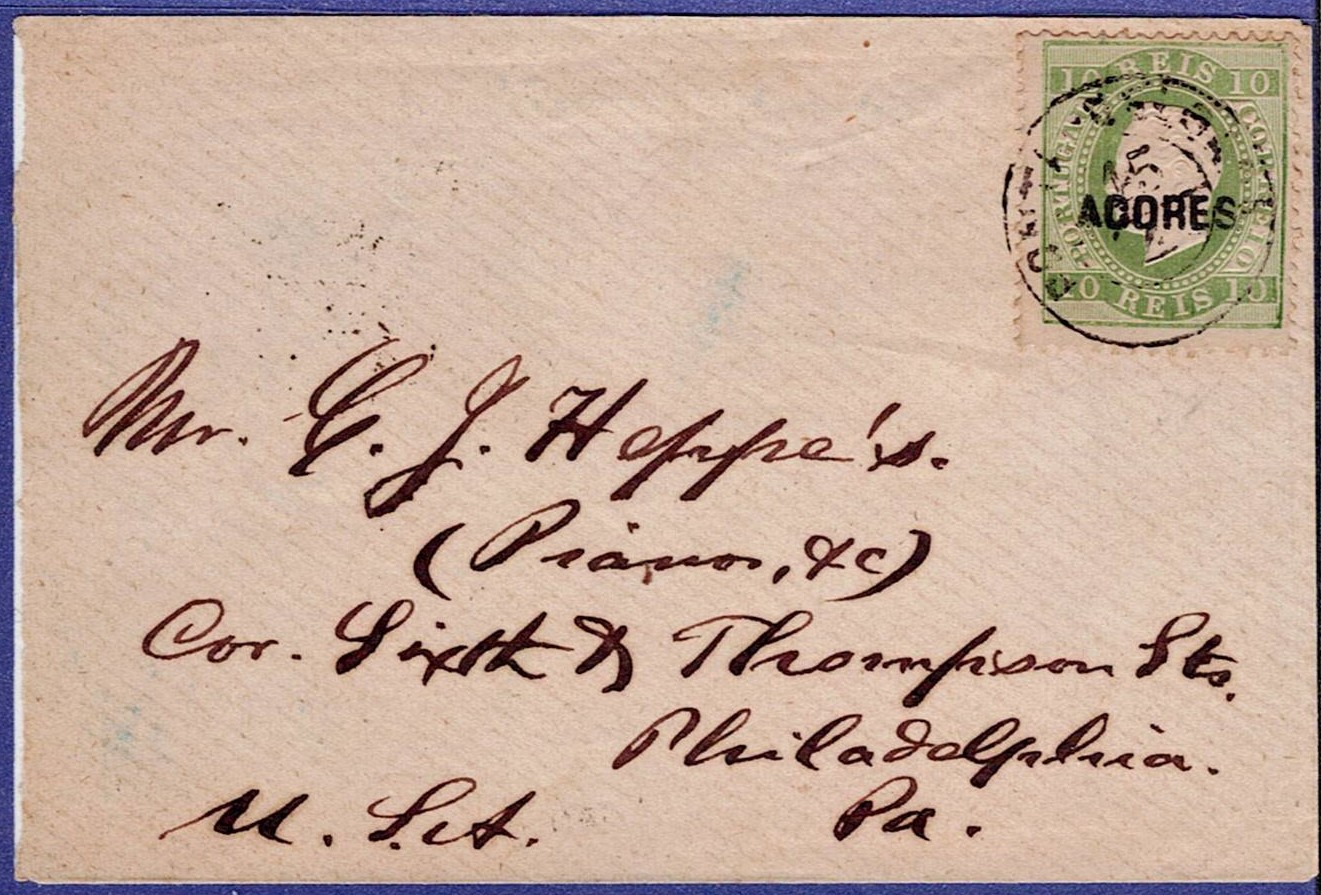 10 REIS 10
PORTUGAL
CORREIO
AÇORES
10 REIS 10
PONTA DELGADA
Mr. C. J. Heppe's.
(Pianos, &c)
Cor. Sixth & Thompson Sts.
Philadelphia.
Pa.
U.S.A.